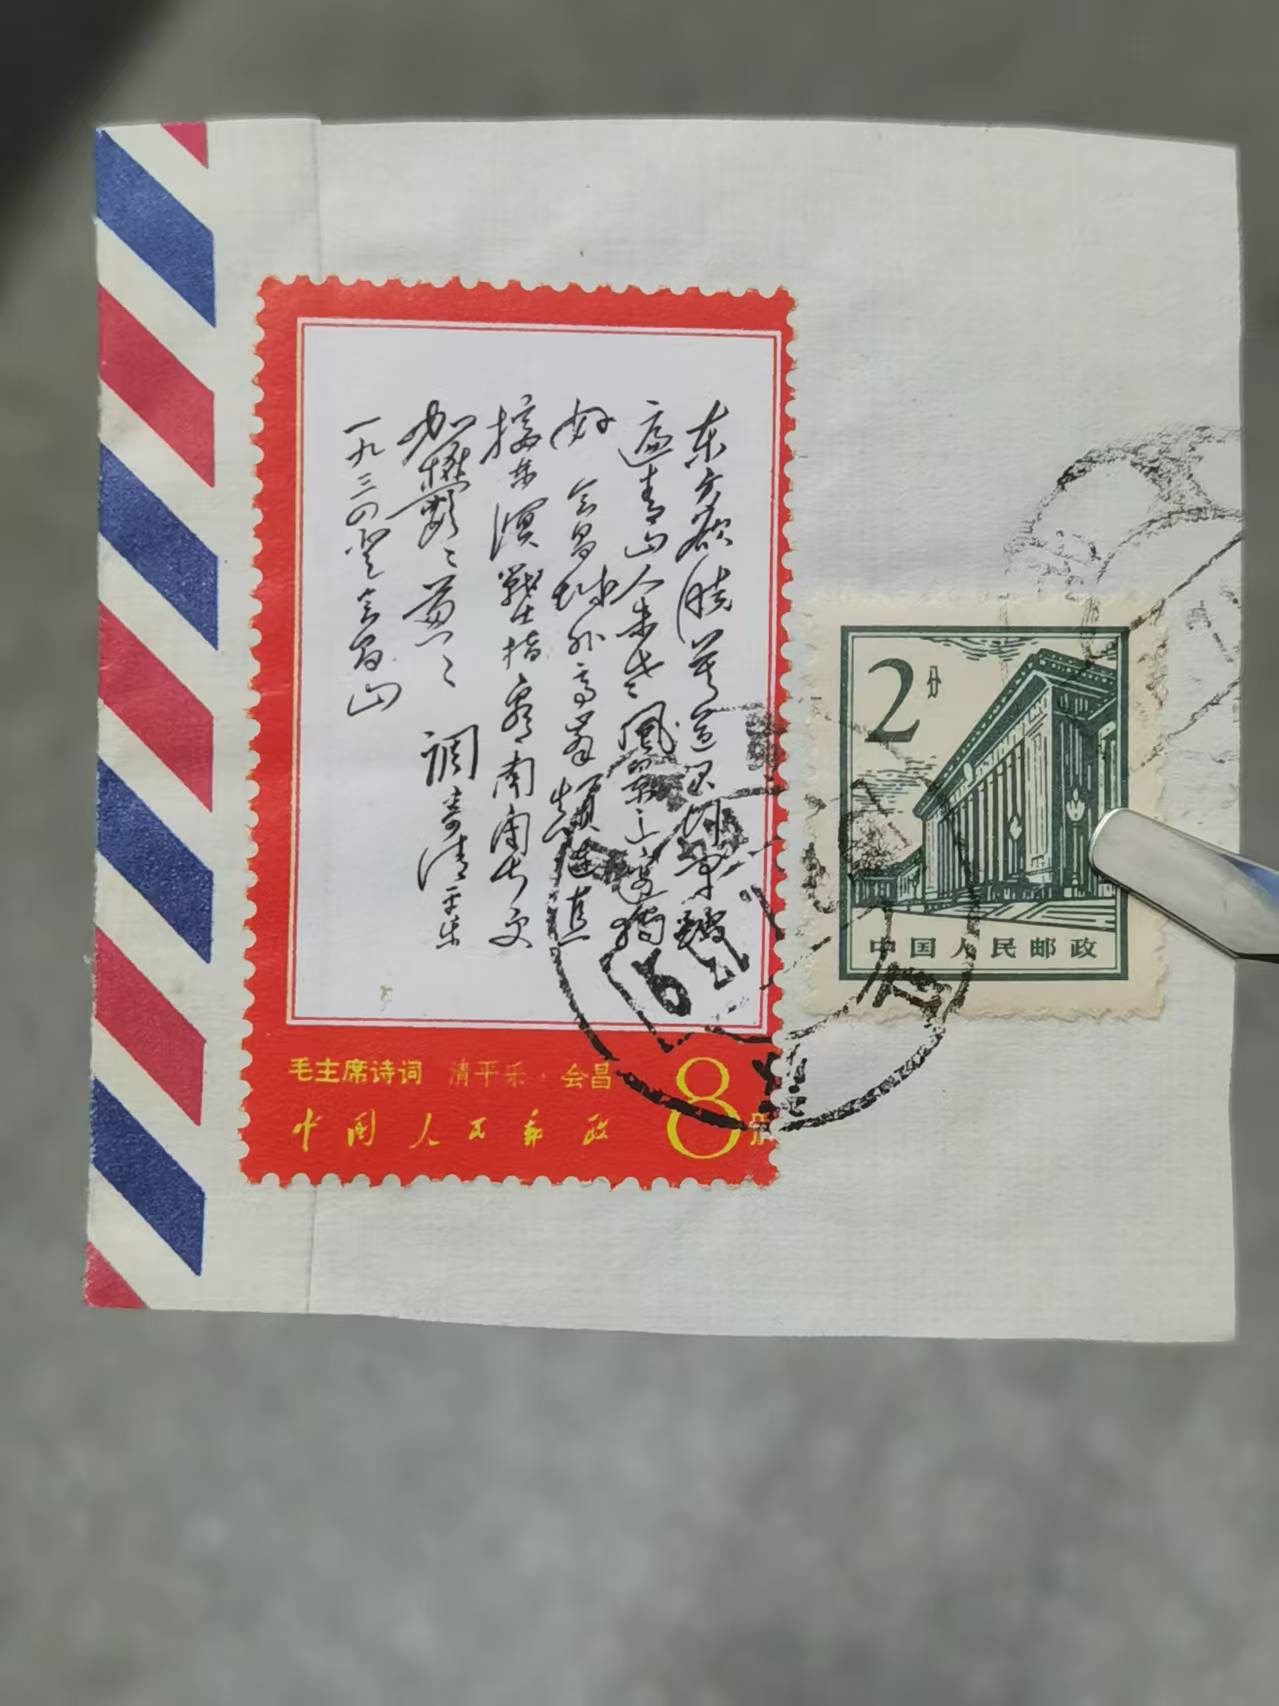 东方欲晓莫道君行早踏
遍青山人未老風景这边独
好 会昌城外高峯颠连直
接东溟戰士指看南粤更
加鬱〻葱〻 调寄清平乐
一九三四登会昌山
毛主席诗词 清平乐·会昌
中国人民邮政 8分
2分
中国人民邮政